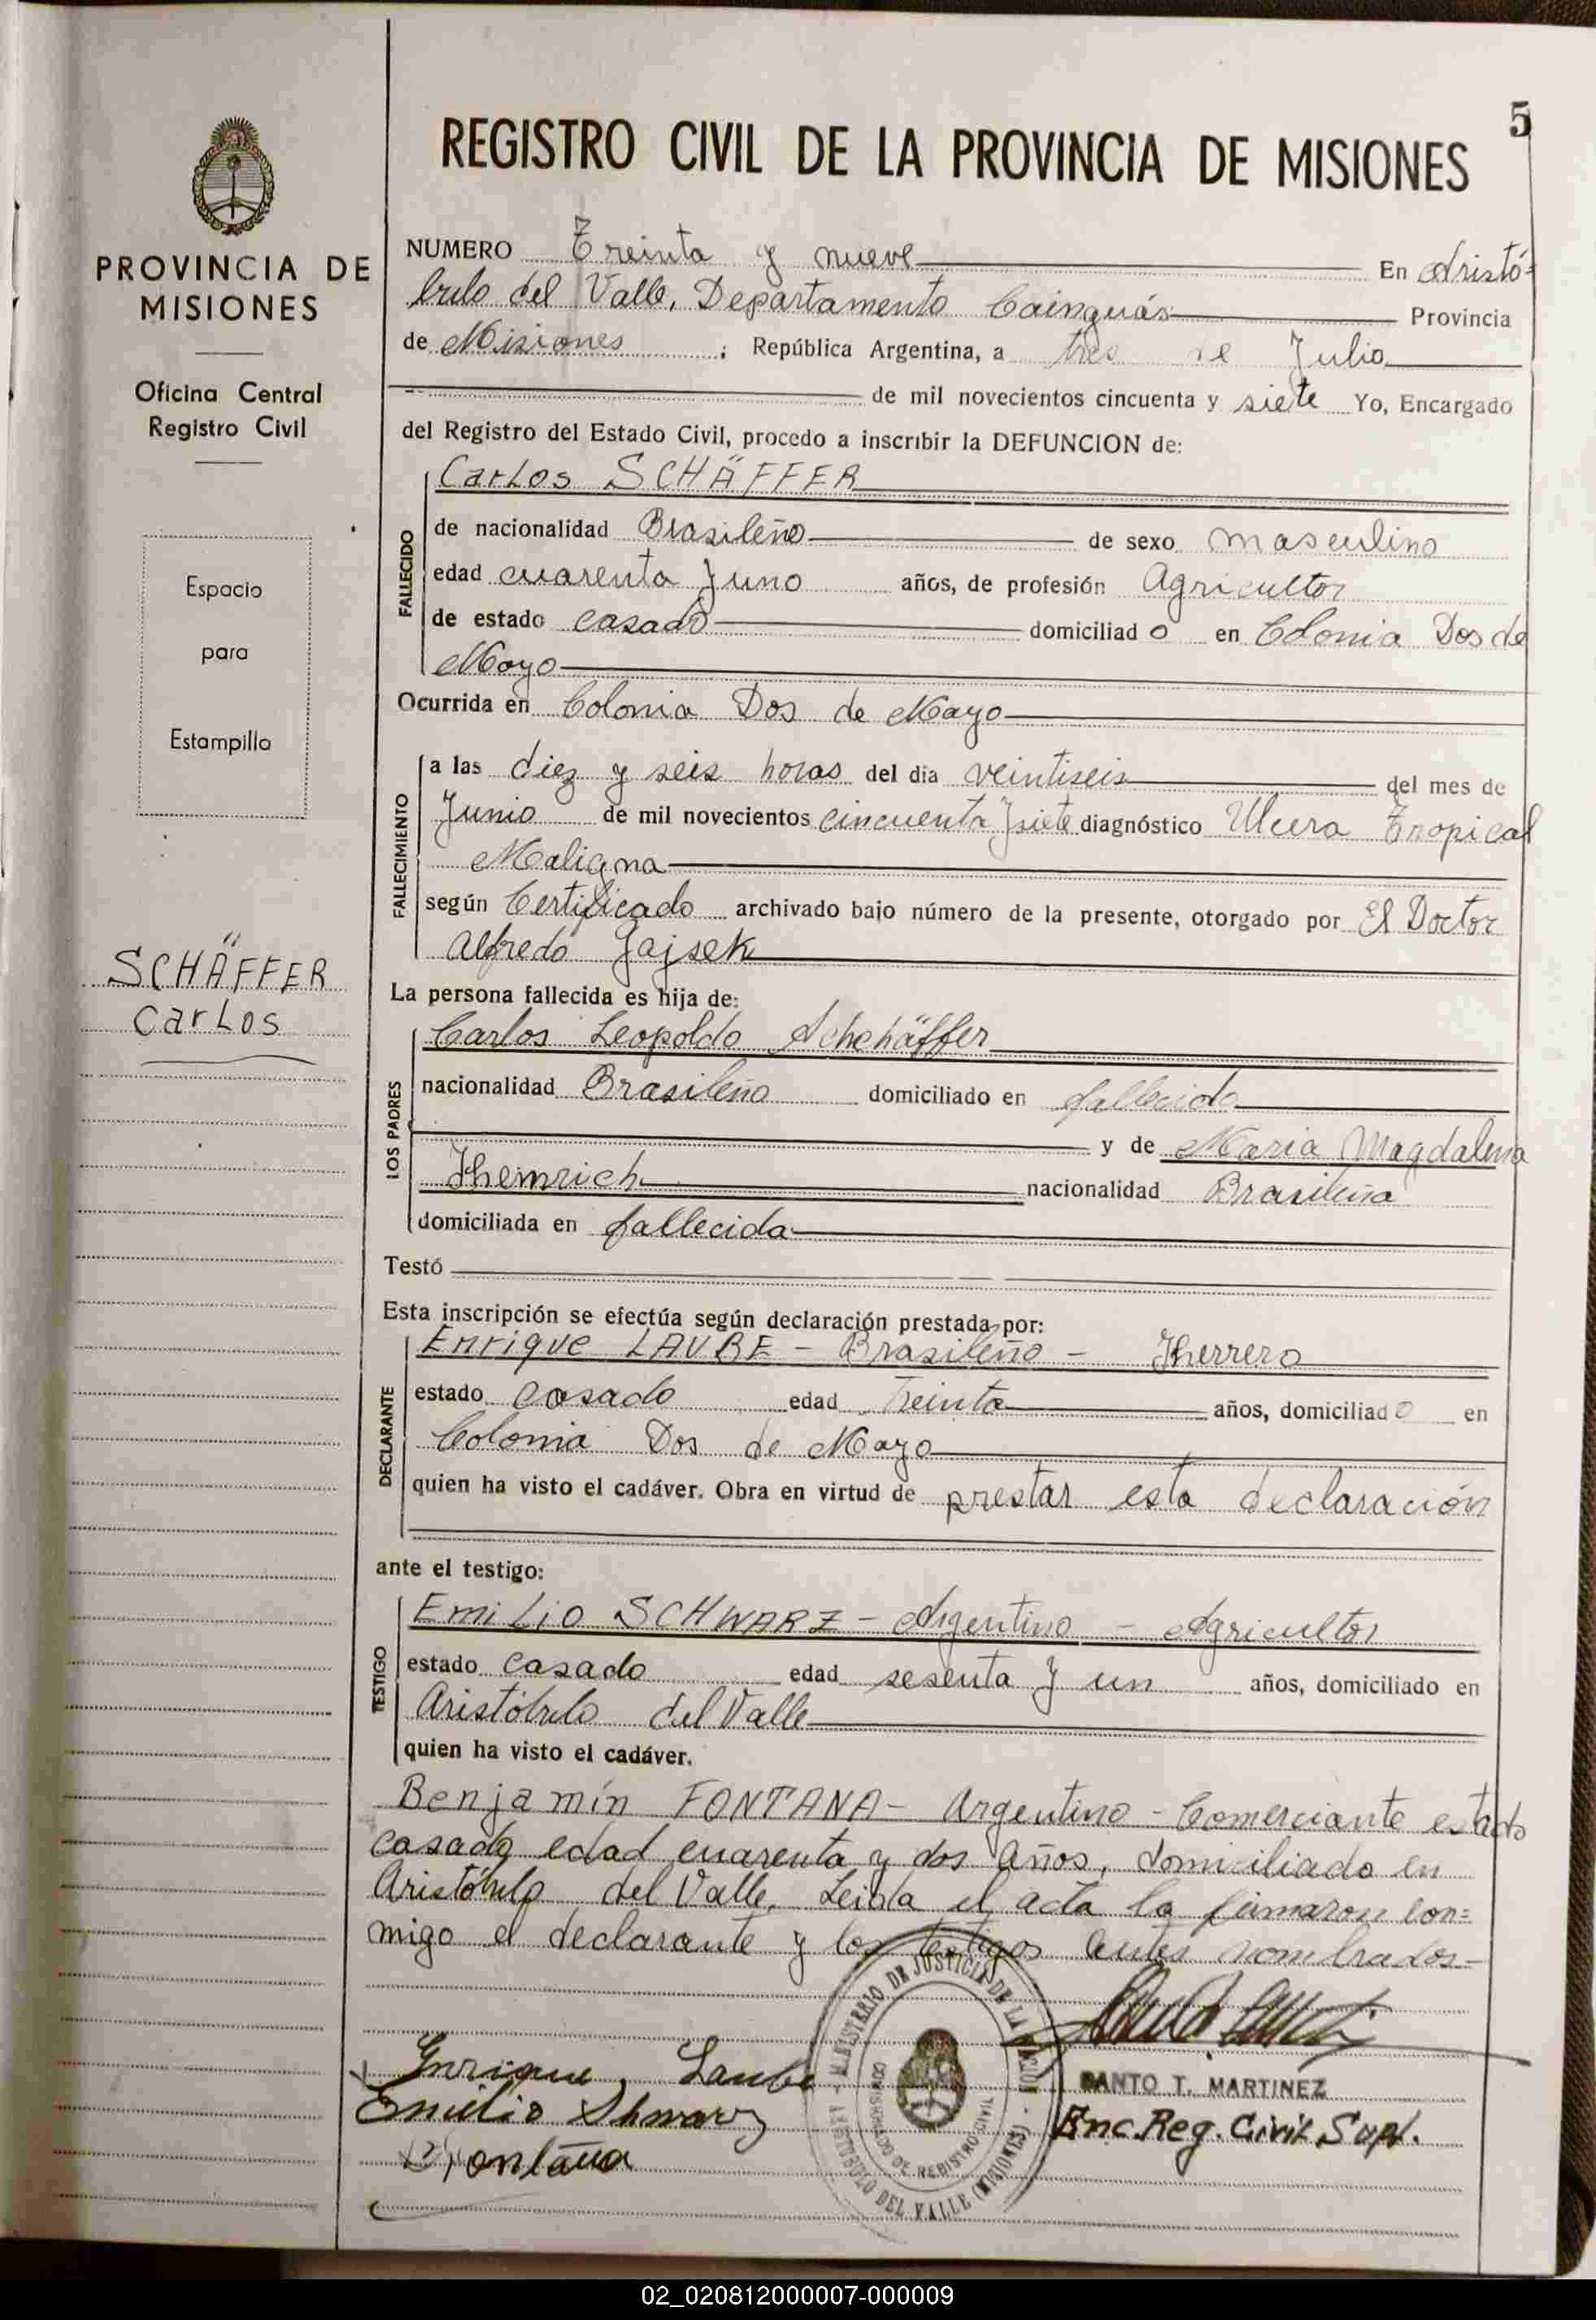 5
REGISTRO CIVIL DE LA PROVINCIA DE MISIONES
PROVINCIA DE
MISIONES
Oficina Central
Registro Civil
Espacio
para
Estampilla
SCHÄFFER
Carlos
NUMERO Treinta y nueve En Aristó-
bulo del Valle, Departamento Cainguás Provincia
de Misiones ; República Argentina, a tres de Julio
de mil novecientos cincuenta y siete Yo, Encargado
del Registro del Estado Civil, procedo a inscribir la DEFUNCION de:
Carlos SCHÄFFER
FALLECIDO
de nacionalidad Brasileño de sexo masculino
edad cuarenta y uno años, de profesión Agricultor
de estado casado domiciliado en Colonia Dos de
Mayo
Ocurrida en Colonia Dos de Mayo
FALLECIMIENTO
a las diez y seis horas del día veintiseis del mes de
Junio de mil novecientos cincuenta y siete diagnóstico Ulcera Tropical
Maligna
según Certificado archivado bajo número de la presente, otorgado por El Doctor
Alfredo Gajsek
La persona fallecida es hija de:
LOS PADRES
Carlos Leopoldo Schchäffer
nacionalidad Brasileño domiciliado en fallecido
y de Maria Magdalena
Jheinrich nacionalidad Brasileña
domiciliada en fallecida
Testó
Esta inscripción se efectúa según declaración prestada por:
DECLARANTE
Enrique LAUBE - Brasileño - Jherrero
estado casado edad Treinta años, domiciliado en
Colonia Dos de Mayo
quien ha visto el cadáver. Obra en virtud de prestar esta declaración
ante el testigo:
TESTIGO
Emilio SCHWARZ - Argentino - Agricultor
estado casado edad sesenta y un años, domiciliado en
Aristóbulo del Valle
quien ha visto el cadáver.
Benjamín FONTANA - Argentino - Comerciante estado
casado edad cuarenta y dos años, domiciliado en
Aristóbulo del Valle. Leida el acta la firmaron con=
migo el declarante y los testigos antes nombrados-
MINISTERIO DE JUSTICIA DE LA NACION
ARISTOBULO DEL VALLE (MISIONES)
DE REGISTRO CIVIL
Enrique Laube
Emilio Shwarz
Fontana
SANTO T. MARTINEZ
Enc. Reg. Civil Supl.
02_020812000007-000009